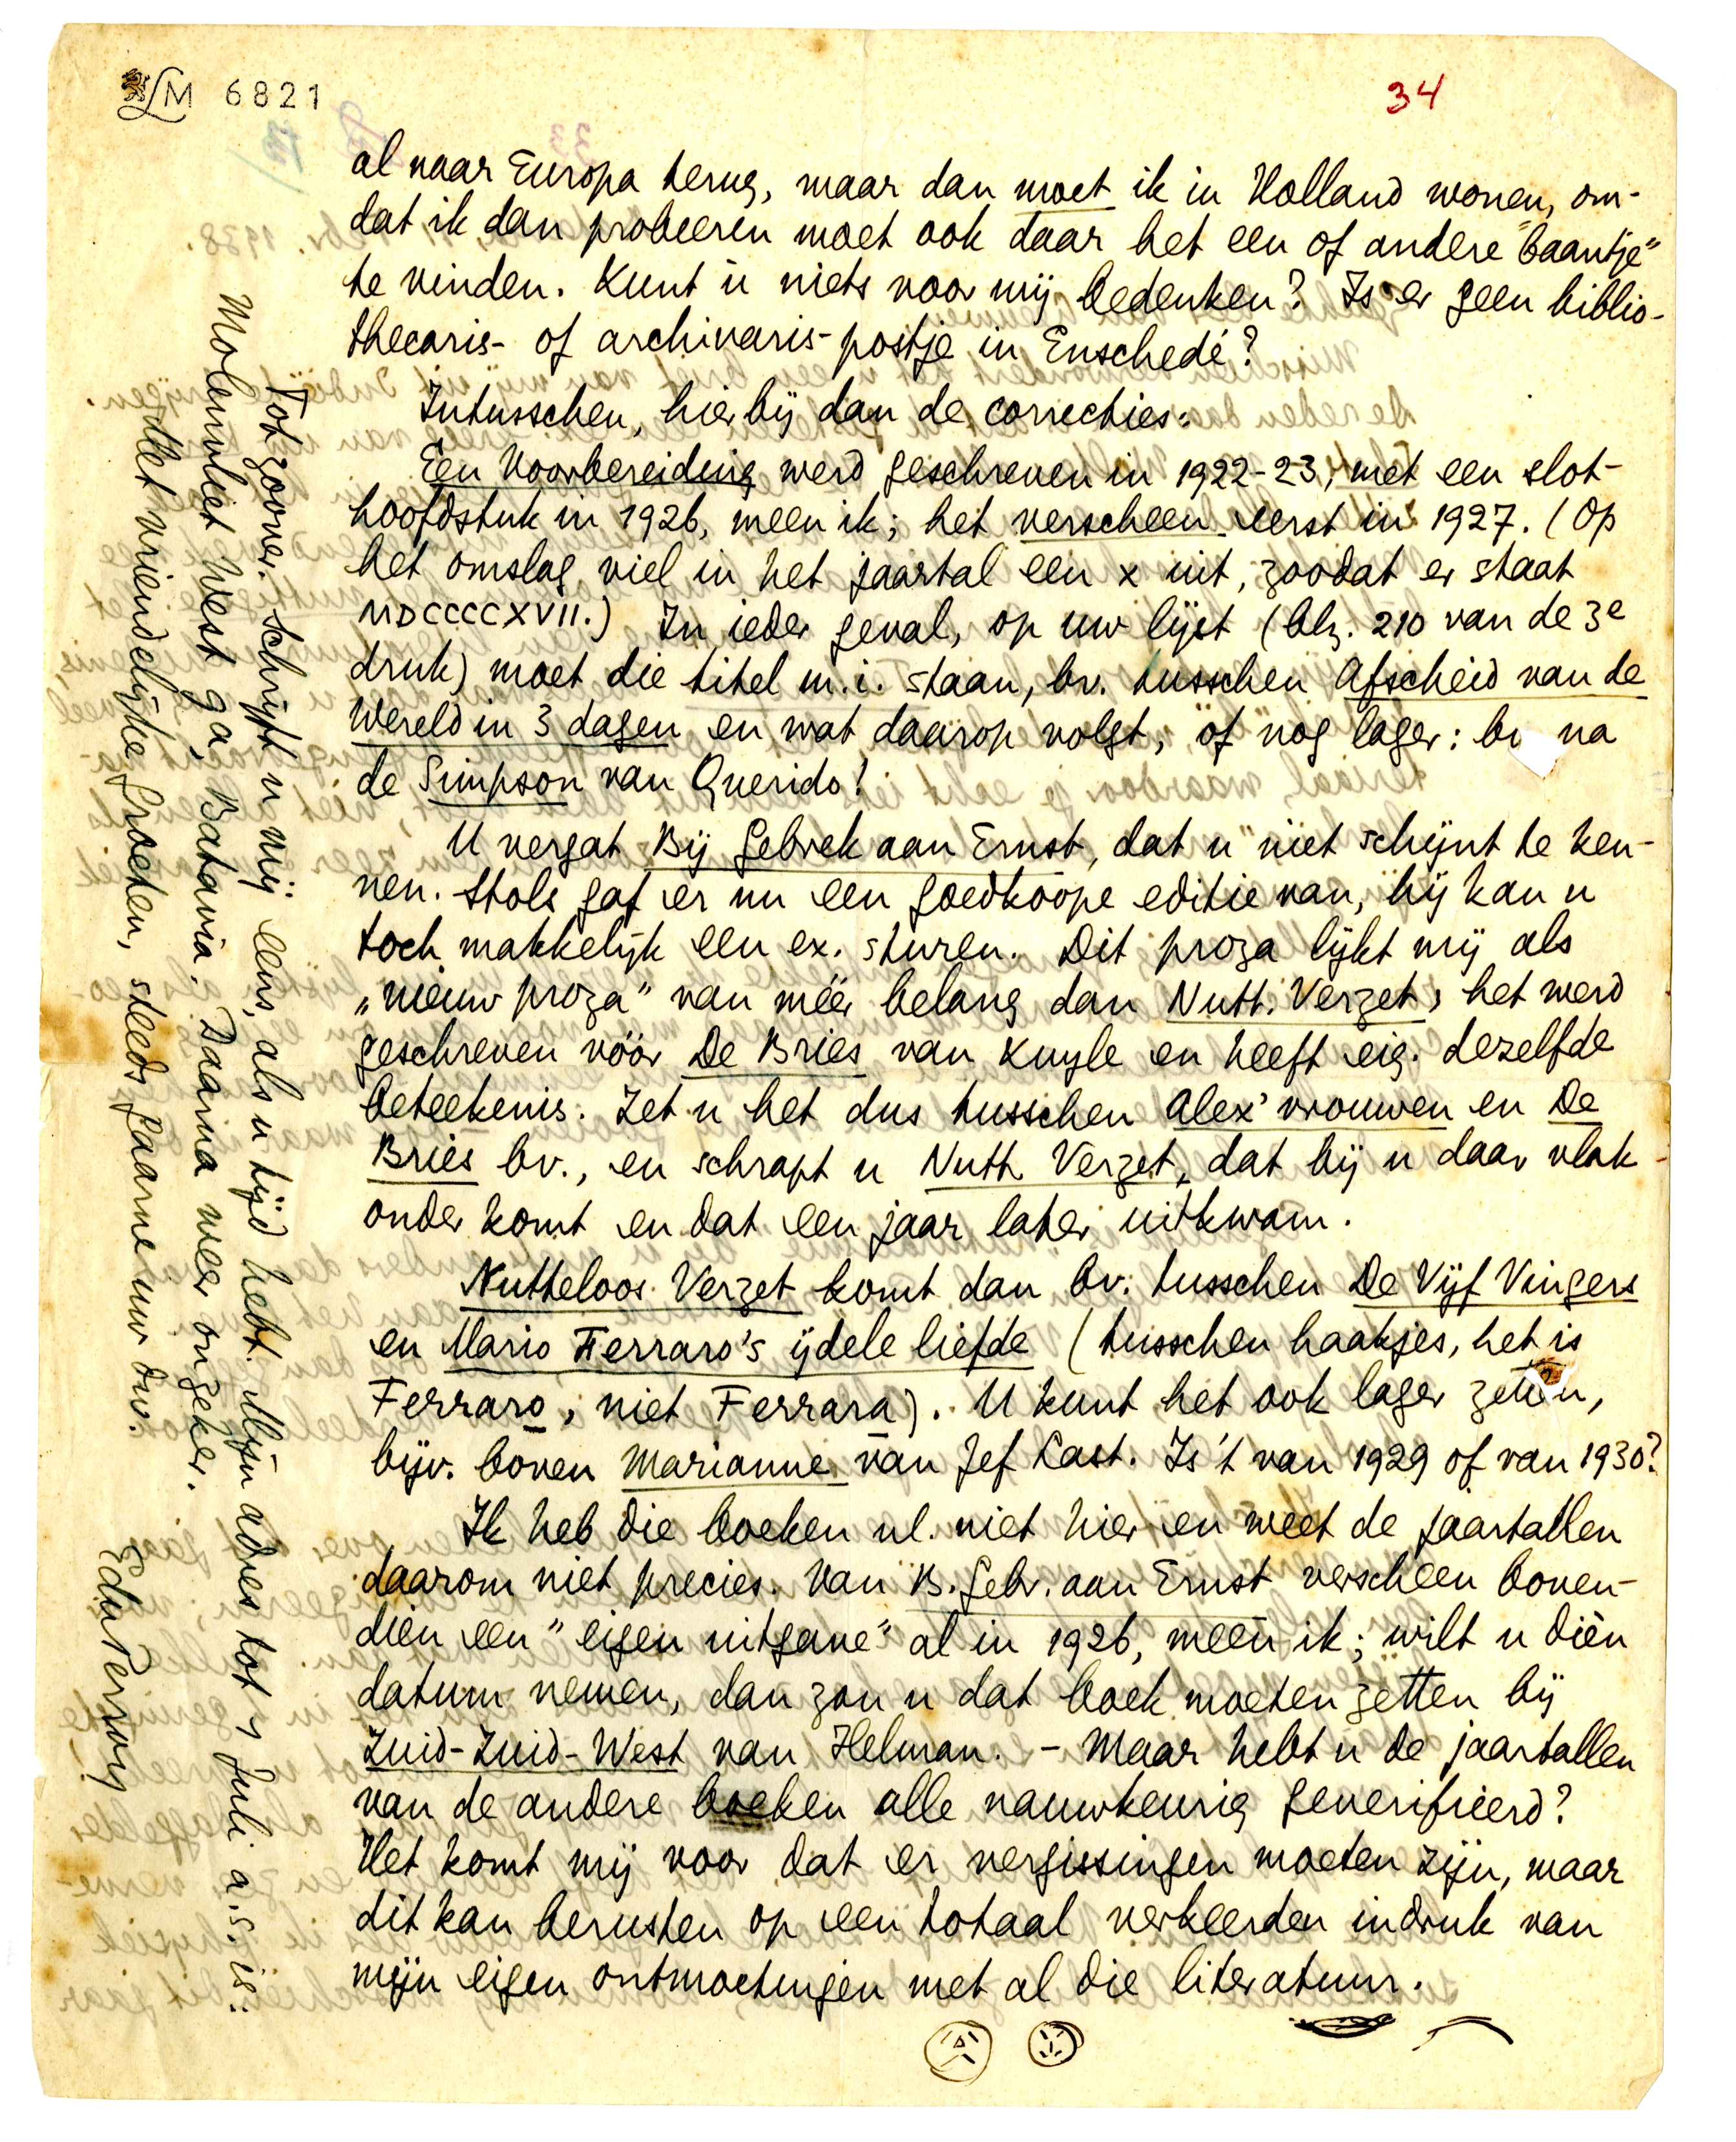 LM 6821
34
al naar Europa terug, maar dan moet ik in Holland wonen, om-
dat ik dan probeeren moet ook daar het een of andere "baantje"
te vinden. Kunt ù niets voor mij bedenken? Is er geen biblio-
thecaris- of archivaris-postje in Enschedé?
Intusschen, hierbij dan de correcties:
Een Voorbereiding werd geschreven in 1922-23, met een slot-
hoofdstuk in 1926, meen ik; het verscheen eerst in 1927. (Op
het omslag viel in het jaartal een x uit, zoodat er staat
MDCCCCXVII.) In ieder geval, op uw lijst (blz. 210 van de 3e
druk) moet die titel m.i. staan, bv. tusschen Afscheid van de
Wereld in 3 dagen en wat daarop volgt, òf nog lager: bv na
de Simpson van Querido!
U vergat Bij Gebrek aan Ernst, dat u niet schijnt te ken-
nen. Stols gaf er nu een goedkoope editie van, hij kan u
toch makkelijk een ex. sturen. Dit proza lijkt mij als
„nieuw proza" van méér belang dan Nutt. Verzet; het werd
geschreven vóór De Bries van Kuyle en heeft eig. dezelfde
beteekenis. Zet u het dus tusschen Alex' vrouwen en De
Bries bv., en schrapt u Nutt. Verzet, dat bij u daar vlak-
onder komt en dat een jaar later uitkwam.
Nutteloos Verzet komt dan bv. tusschen De Vijf Vingers
en Mario Ferraro's ijdele liefde (tusschen haakjes, het is
Ferraro, niet Ferrara). U kunt het ook lager zetten,
bijv. boven Marianne van Jef Last. Is 't van 1929 of van 1930?
Ik heb die boeken nl. niet hier en weet de jaartallen
daarom niet precies. Van B. Gebr. aan Ernst verscheen boven-
dien een "eigen uitgave" al in 1926, meen ik; wilt u dièn
datum nemen, dan zou u dat boek moeten zetten bij
Zuid-Zuid-West van Helman. - Maar hebt u de jaartallen
van de andere boeken alle nauwkeurig geverifieerd?
Het komt mij voor dat er vergissingen moeten zijn, maar
dit kan berusten op een totaal verkeerden indruk van
mijn eigen ontmoetingen met al die literatuur.
Tot zoover. Schrijft u mij eens, als u tijd hebt. Mijn adres tot 1 Juli a.s. is:
Molenvliet West 9a, Batavia. Daarna weer onzeker.
Met vriendelijke groeten, steeds gaarne uw dw.
EduPerron